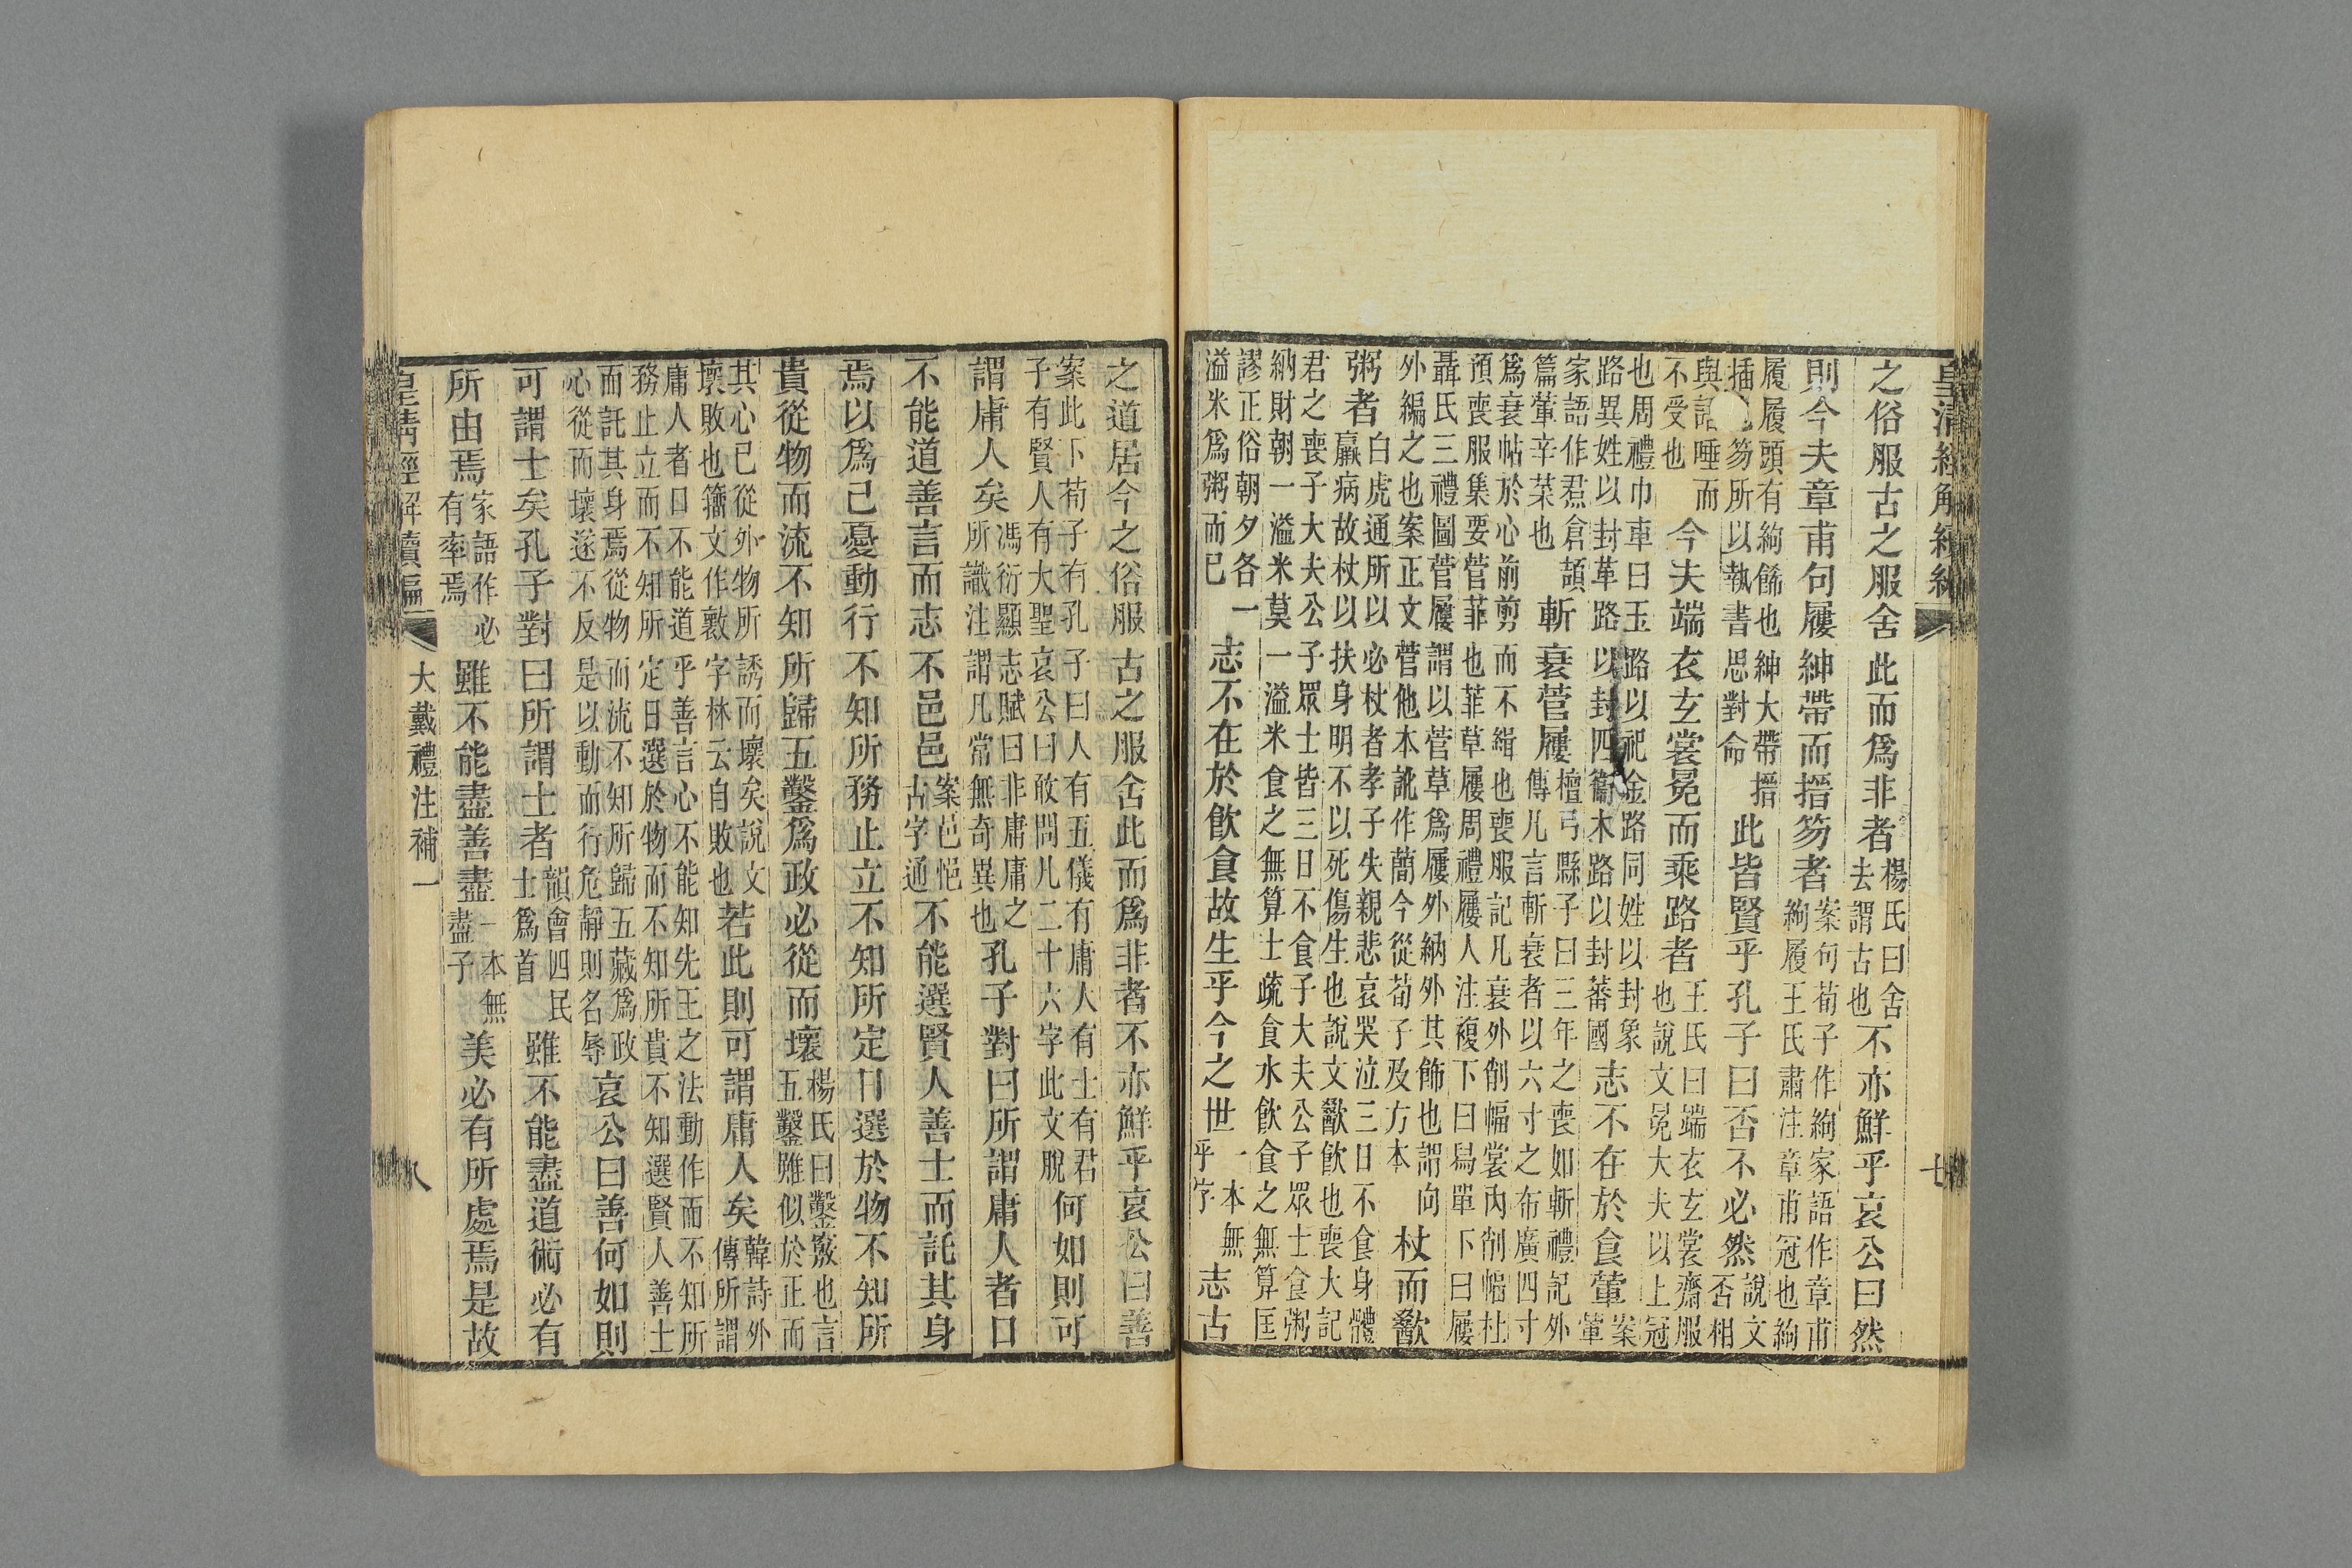 皇清經解續編 七
之俗服古之服舍此而爲非者
楊氏曰舍
去謂古也
不亦鮮乎哀公曰然
則今夫章甫句屨紳帶而搢笏者
案句荀子作絇家語作章甫
絇履王氏肅注章甫冠也絇
履履頭有絇飾也紳大帶搢
插笏所以執書思對命
此皆賢乎孔子曰否不必然
說文
否相
與語唾而
不受也
今夫端衣玄裳冕而乘路者
王氏曰端衣玄裳齋服
也說文冕大夫以上冠
也周禮巾車曰玉路以祀金路同姓以封象
路異姓以封革路以封四衞木路以封蕃國
志不在於食葷
案
葷
家語作焄倉頡
篇葷辛菜也
斬衰菅屨
檀弓縣子曰三年之喪如斬禮記外
傳凡言斬衰者以六寸之布廣四寸
爲衰帖於心前剪而不緝也喪服記凡衰外削幅裳內削幅杜
預喪服集要菅菲也菲草屨周禮屨人注複下曰舄單下曰屨
聶氏三禮圖菅屨謂以菅草爲屨外納外其飾也謂向
外編之也案正文菅他本訛作簡今從荀子及方本
杖而歠
粥者
白虎通所以必杖者孝子失親悲哀哭泣三日不食身體
羸病故杖以扶身明不以死傷生也說文歠飲也喪大記
君之喪子大夫公子眾士皆三日不食子大夫公子眾士食粥
納財朝一溢米莫一溢米食之無算士疏食水飲食之無算匡
謬正俗朝夕各一
溢米爲粥而已
志不在於飲食故生乎今之世
一本無
乎字
志古
之道居今之俗服古之服舍此而爲非者不亦鮮乎哀公曰善
案此下荀子有孔子曰人有五儀有庸人有士有君
子有賢人有大聖哀公曰敢問凡二十六字此文脫
何如則可
謂庸人矣
馮衍顯志賦曰非庸庸之
所識注謂凡常無奇異也
孔子對曰所謂庸人者口
不能道善言而志不邑邑
案邑悒
古字通
不能選賢人善士而託其身
焉以爲己憂動行不知所務止立不知所定日選於物不知所
貴從物而流不知所歸五鑿爲政必從而壞
楊氏曰鑿竅也言
五鑿雖似於正而
其心已從外物所誘而壞矣說文
壞敗也籀文作𣀩字林云自敗也
若此則可謂庸人矣
韓詩外
傳所謂
庸人者口不能道乎善言心不能知先王之法動作而不知所
務止立而不知所定日選於物而不知所貴不知選賢人善士
而託其身焉從物而流不知所歸五藏爲政
心從而壞遂不反是以動而行危靜則名辱
哀公曰善何如則
可謂士矣孔子對曰所謂士者
韻會四民
士爲首
雖不能盡道術必有
所由焉
家語作必
有率焉
雖不能盡善盡
一本無
盡子
美必有所處焉是故
皇清經解續編 大戴禮注補一 八